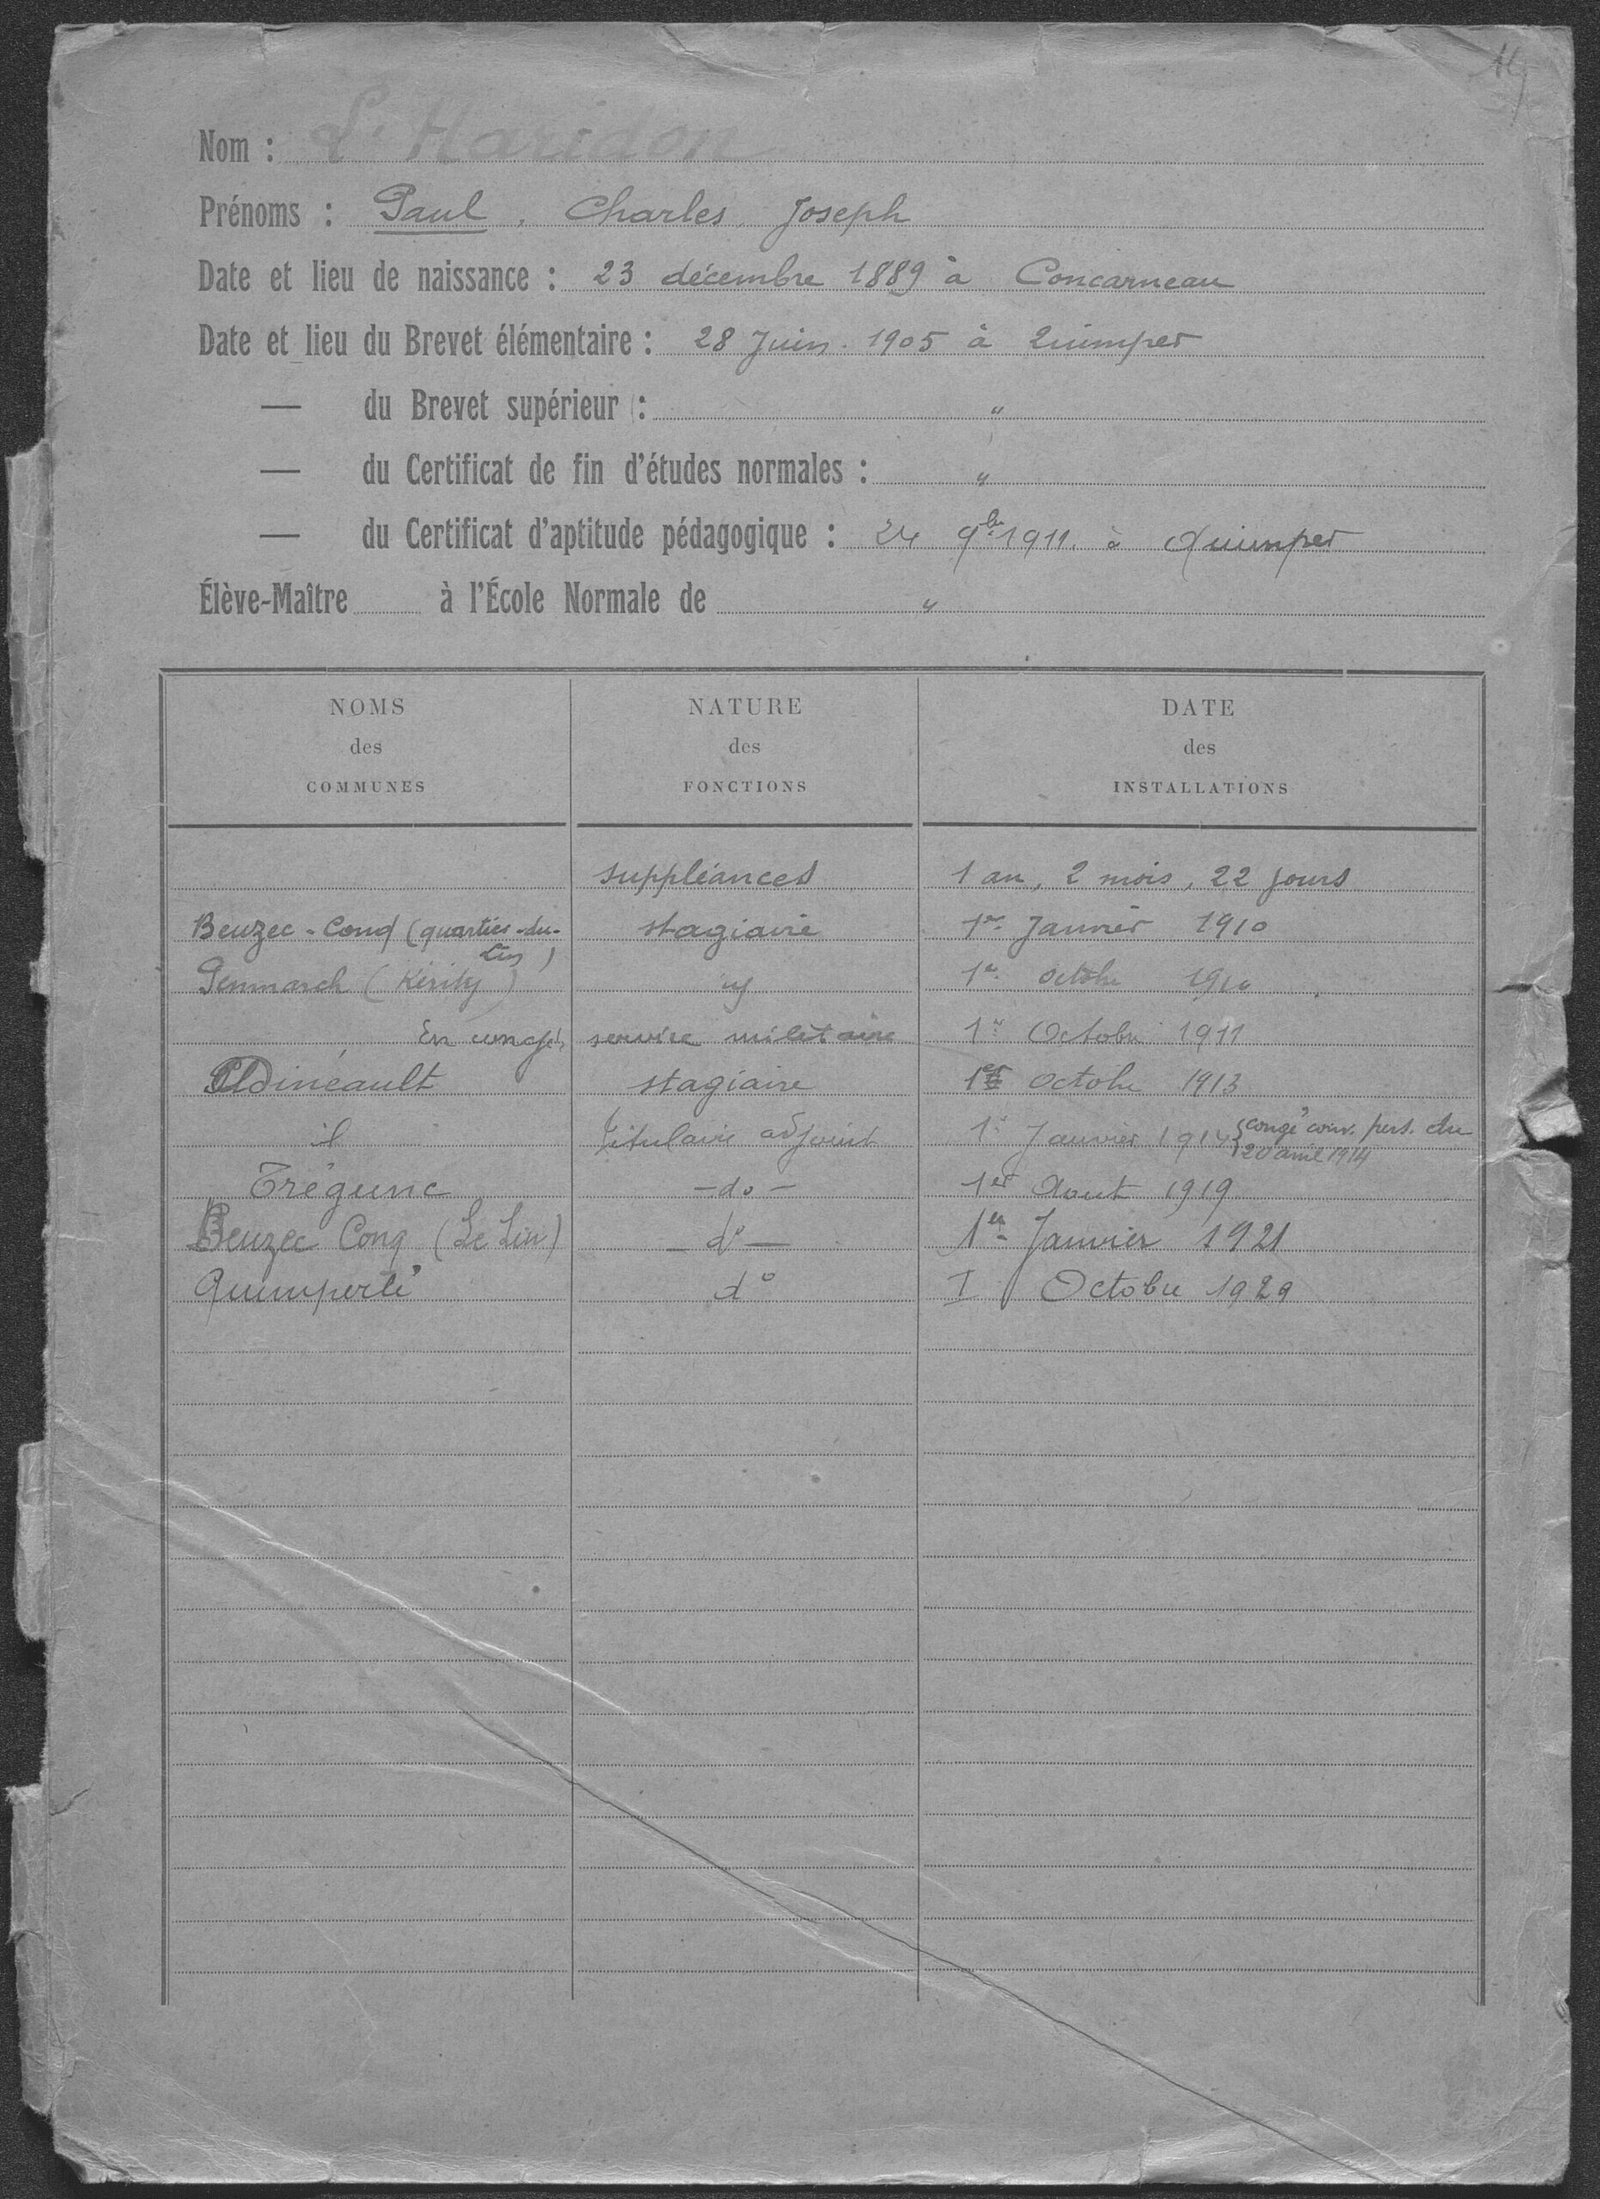 14
Nom : L'Haridon
Prénoms : Paul, Charles, Joseph
Date et lieu de naissance : 23 décembre 1889 à Concarneau
Date et lieu du Brevet élémentaire : 28 Juin 1905 à Quimper
— du Brevet supérieur : "
— du Certificat de fin d'études normales : "
— du Certificat d'aptitude pédagogique : 24 9bre 1911 à Quimper
Élève-Maître à l'École Normale de "
NOMS des COMMUNES NATURE des FONCTIONS DATE des INSTALLATIONS
suppléances 1 an, 2 mois, 22 jours
Beuzec-Conq (quartier-du-Lin) stagiaire 1er Janvier 1910
Penmarch (Kérity) id 1er octobre 1910
En congé, service militaire 1er Octobre 1911
Dinéault stagiaire 1er octobre 1913
id titulaire adjoint 1er Janvier 1914 {congé conv. pers. du 20 avril 1914
Trégunc -do- 1er Aout 1919
Beuzec Conq (Le Lin) - do - 1er Janvier 1921
Quimperlé do I Octobre 1929